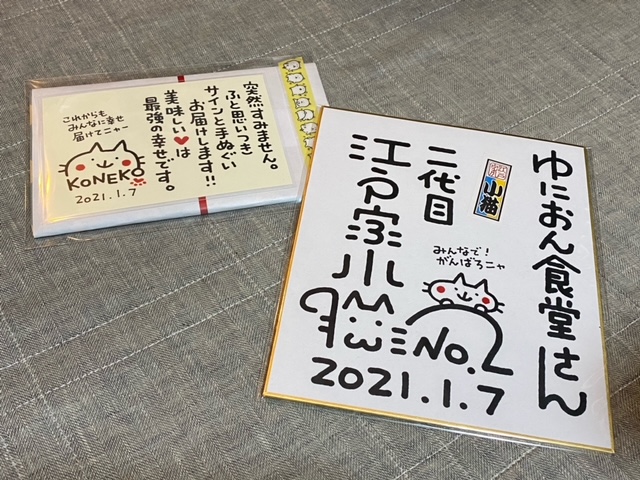 突然すみません。
ふと思いつき
サインと手ぬぐい
お届けします!!
美味しい♥は
最強の幸せです。
これからも
みんなに幸せ
届けてニャー
KONEKO
2021.1.7
ゆにおん食堂さん
小猫
二代目
江戸家小
みんなで!
がんばろニャ
No.2
2021.1.7